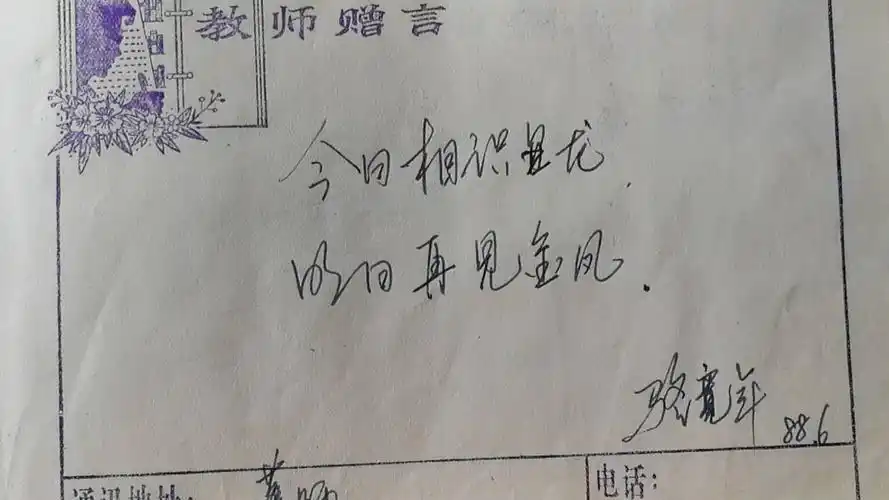 教师赠言
今日相识龙
明日再见金凤.
88.6
通讯地址:
电话: